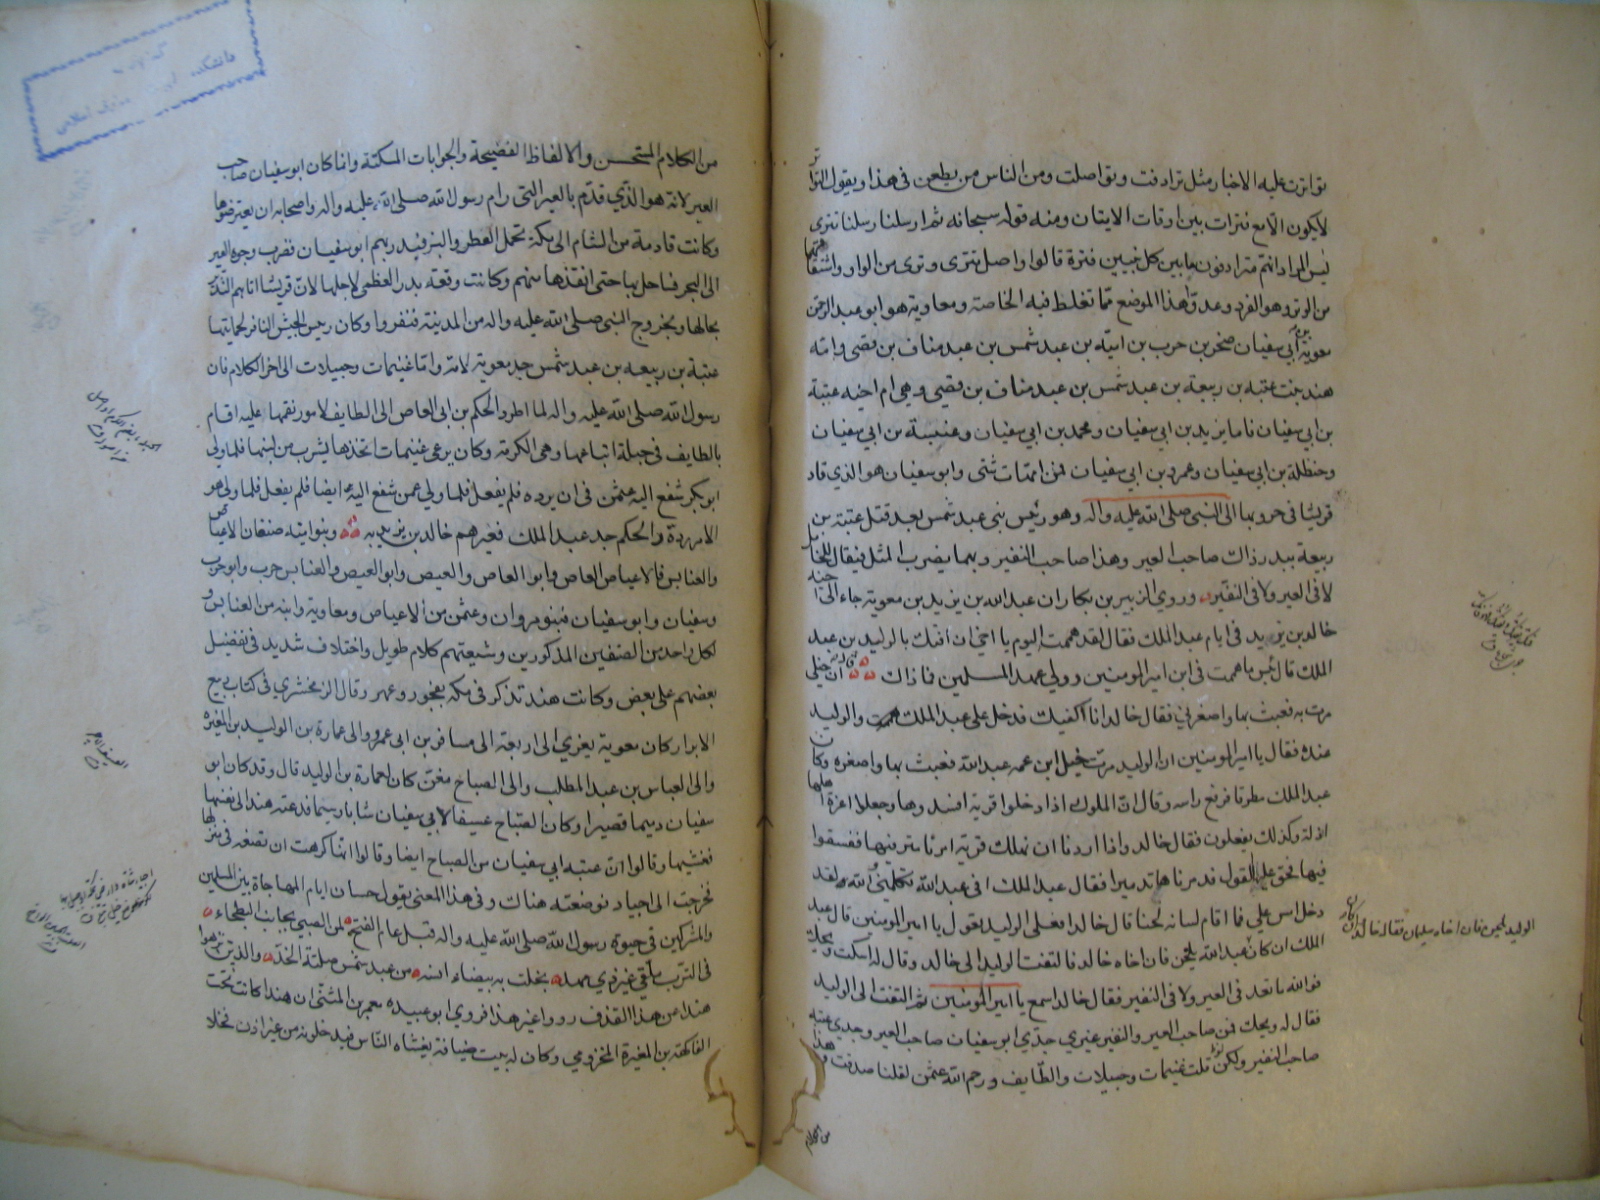 تواترت عليه الاخبار مثل ترادفت وتواصلت ومن الناس من يطعن في هذا ويقول التواتر
لا يكون الا مع فترات بين اوقات الاتيان ومنه قوله سبحانه ثم ارسلنا رسلنا تترى
ليس المراد انهم مترادفون بل بين كل نبيين فترة قالوا واصل تترى وترى من الواو واشتقاقها
من الوتر وهو الفرد وعدوا هذا الموضع مما تغلط فيه الخاصة ومعاوية هو ابو عبد الرحمن
معوية بن أبي سفيان صخر بن حرب بن امية بن عبد شمس بن عبد مناف بن قصي وامه
هند بنت عتبه بن ربيعة بن عبد شمس بن عبد مناف بن قصي وهي ام اخيه عتبة
بن ابي سفيان فاما يزيد بن ابي سفيان ومحمد بن ابي سفيان وعنبسة بن ابي سفيان
وحنظلة بن ابي سفيان وعمرو بن ابي سفيان فمن امهات شتى وابو سفيان هو الذي قاد
قريشا في حروبها الى النبي صلى الله عليه وآله وهو رئيس بني عبد شمس بعد قتل عتبة بن
ربيعة ببدر ذاك صاحب العير وهذا صاحب النفير وبهما يضرب المثل فيقال للخامل
لا في العير ولا في النفير وروى الزبير بن بكار ان عبد الله بن يزيد بن معوية جاء الى اخيه
خالد بن يزيد في ايام عبد الملك فقال لقد هممت اليوم يا اخي ان افتك بالوليد بن عبد
الملك قال بئس ما هممت في ابن امير المومنين وولي عهد المسلمين فما ذاك قال ان خيلي
مرت به فعبث بها واصغرني فقال خالد انا اكفيك فدخل على عبد الملك والوليد
عنده فقال يا امير المومنين ان الوليد مرت خيل ابن عمه عبد الله فعبث بها واصغره وكان
عبد الملك مطرقا فرفع راسه وقال ان الملوك اذا دخلوا قرية افسدوها وجعلوا اعزة اهلها
اذلة وكذلك يفعلون فقال خالد واذا اردنا ان نهلك قرية امرنا مترفيها ففسقوا
فيها فحق عليها القول فدمرناها تدميرا فقال عبد الملك افي عبد الله تكلمني والله لقد
دخل امس علي فما اقام لسانه لحنا قال خالد افعلى الوليد تعول يا امير المومنين قال عبد
الملك ان كان عبد الله يلحن فان اخاه خالد فالتفت الوليد الى خالد وقال له اسكت ويحك
فوالله ما تعد في العير ولا في النفير فقال خالد اسمع يا امير المومنين ثم التفت الى الوليد
فقال له ويحك فمن صاحب العير والنفير غيري جدي ابو سفيان صاحب العير وجدي عتبة
صاحب النفير ولكن لو قلت غنيمات وحبيلات والطايف ورحم الله عثمن لقلنا صدقت وهذا
من الكلام
الوليد يلحن فان اخاه سليمان فقال خالد ان كان
من الكلام المستحسن والالفاظ الفصيحة والجوابات المسكتة وانما كان ابو سفيان صاحب
العير لانه هو الذي قدم بالعير التي رام رسول الله صلى الله عليه واله واصحابه ان يعترضوها
وكانت قادمة من الشام الى مكة تحمل العطر والبر فنذر بهم ابو سفيان فضرب وجوه العير
الى البحر فساحل بها حتى انقذها منهم وكانت وقعة بدر العظمى لاجلها لان قريشا اتاهم النذير
بحالها وبخروج النبي صلى الله عليه واله من المدينة فنفروا وكان رئيس الجيش النافر لحمايتها
عتبة بن ربيعه بن عبد شمس جد معوية لامه واما غنيمات وحبيلات الى اخر الكلام فان
رسول الله صلى الله عليه واله لما اطرد الحكم بن ابي العاص الى الطايف لامور نقمها عليه اقام
بالطايف في حبلة ابتاعها وهي الكرمة وكان يرعى غنيمات اتخذها يشرب من لبنها فلما ولي
ابو بكر شفع اليه عثمن في ان يرده فلم يفعل فلما ولي عمر شفع اليه ايضا فلم يفعل فلما ولي هو
الامر رده والحكم جد عبد الملك فعيرهم خالد بن يزيد به وبنو امية صنفان الاعياص
والعنابس فالاعياص العاص وابو العاص والعيص وابو العيص والعنابس حرب وابو حرب
وسفيان وابو سفيان فبنو مروان وعثمن من الاعياص ومعاوية وابنه من العنابس و
لكل واحد من الصنفين المذكورين وشيعتهم كلام طويل واختلاف شديد في تفضيل
بعضهم على بعض وكانت هند تذكر في مكة بفجور وعهر وقال الزمخشري في كتاب ربيع
الابرار كان معوية يعزي الى اربعة الى مسافر بن ابي عمرو والى عمارة بن الوليد بن المغيرة
والى العباس بن عبد المطلب والى الصباح مغن كان لعمارة بن الوليد قال وقد كان ابو
سفيان دميما قصيرا وكان الصباح عسيفا لابي سفيان شابا وسيما فدعته هند الى نفسها
فغشيها وقالوا ان عتبه ابي سفيان من الصباح ايضا وقالوا انها كرهت ان تضعه في منزلها
فخرجت الى اجياد فوضعته هناك وفي هذا المعنى يقول حسان ايام المهاجاة بين المسلمين
والمشركين في حيوة رسول الله صلى الله عليه واله قبل عام الفتح لمن الصبي بجانب البطحاء
في الترب ملقى غير ذي مهد نجلت به بيضاء انسة من عبد شمس صلتة الخد والذين نزهوا
هندا عن هذا القذف رووا غير هذا فروي ابو عبيده معمر بن المثنى ان هندا كانت تحت
الفاكهة بن المغيرة المخزومي وكان له بيت ضيافة يغشاه الناس فيدخلونه من غير اذن فخلا